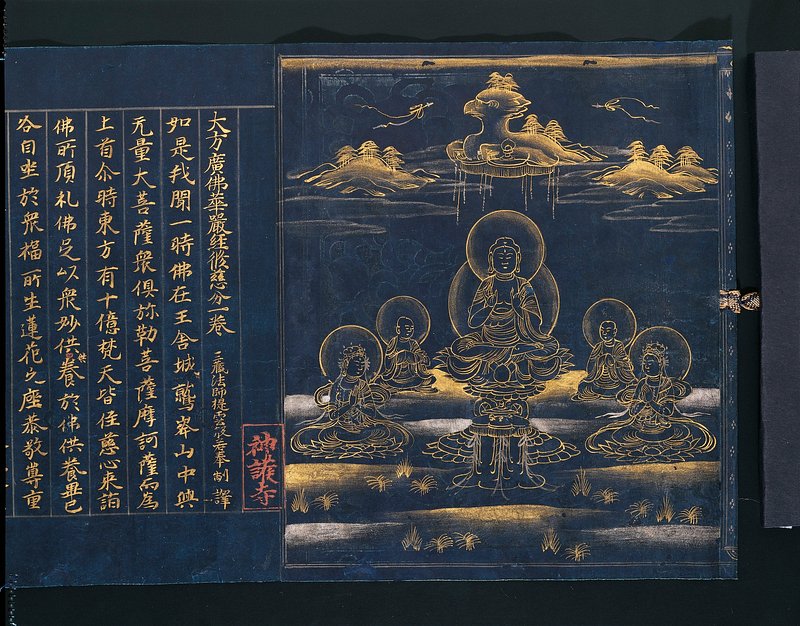 大方廣佛華嚴經修慈分一卷
三藏法師提雲般若奉制譯
如是我聞一時佛在王舍城鷲峯山中與
无量大菩薩衆俱弥勒菩薩摩訶薩而為
上首尒時東方有十億梵天皆住慈心来詣
佛所頂礼佛足以衆妙供養於佛供養畢已
各自坐於衆福所生蓮花之座恭敬尊重
神護寺